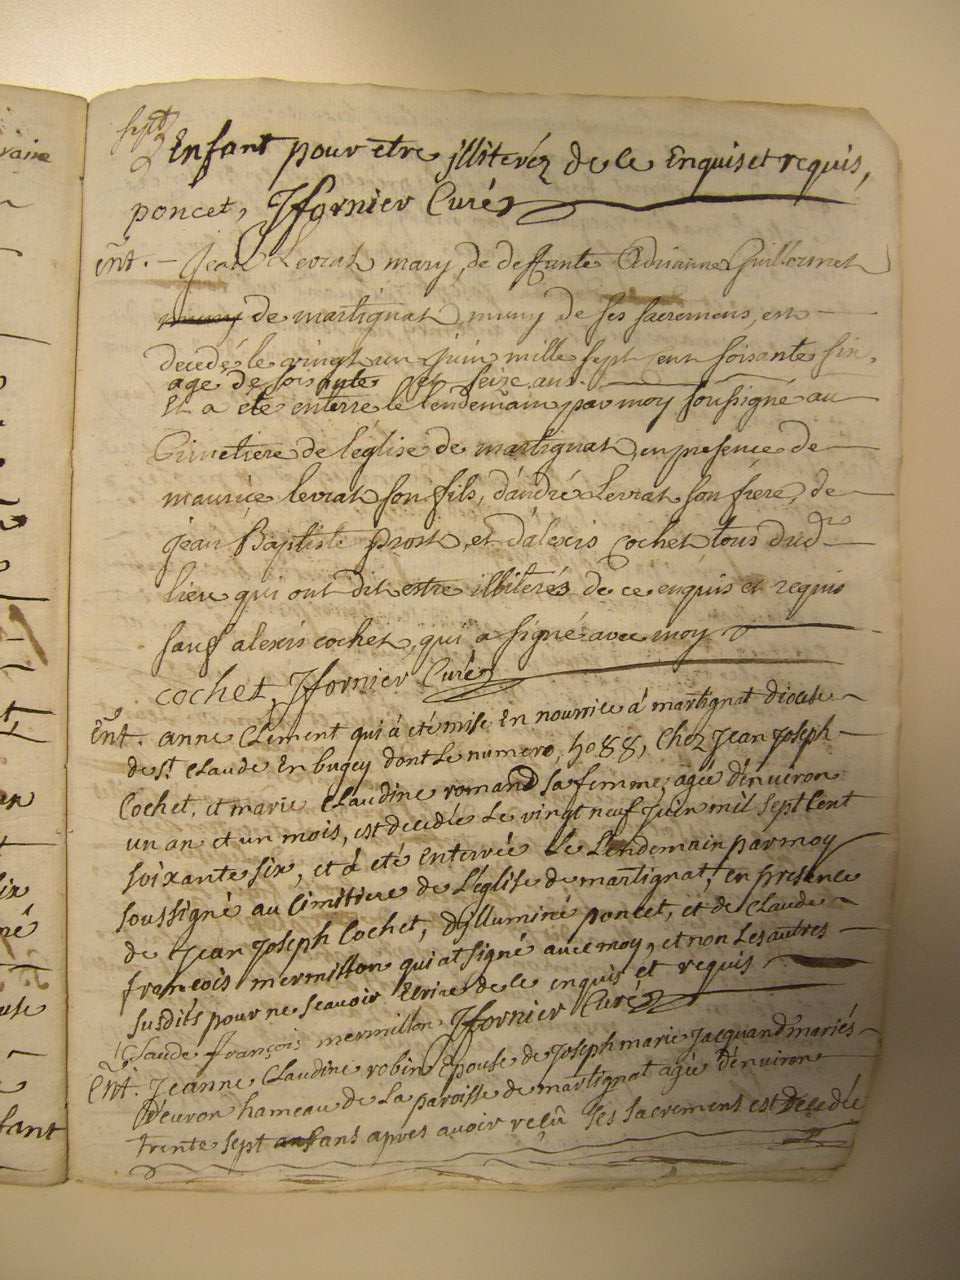 sept
Enfant pour etre illiteréz de ce Enquis et requis,
poncet, Jfornier Curéz
Ent. - Jean Levrat mary, de deffunte Adrianne Guillermet
muny de martignat muny de ses sacremens, est
decedé le vingt un juin mille sept cent soisante six,
age de soisante et seize ans.
Et a eté enterré le lendemain par moy soussigné au
Cimetiere de l'église de martignat, en presence de
maurice levrat son fils, d'andré Levrat son frere, de
jean Baptiste prost, et d'alexis Cochet tous dud
lieu qui ont dit estre illiterés de ce enquis et requis
sauf alexis cochet, qui a signé avec moy
cochet, Jfornier Curéz
Ent. anne Clement qui à été mise En nourrice à martignat diocese
de St. Claude En bugey dont le numero, Chez Jean Joseph
Cochet, et marie Claudine romand sa femme, agée d'enuiron
un an et un mois, est decedée Le vingt neuf Juin mil sept Cent
soixante six, et à été enterrée Le Lendemain par moy
soussigné au Cimitiere de L'église de martignat, en presence
de Jean Joseph Cochet, d'illuminé poncet, et de Claude
françois mermillon qui at signé avec moy, et non Les autres
susdits pour ne scavoir Ecrire de ce enquis et requis
Claude françois mermillon Jfornier Curéz
Ent. Jeanne Claudine robin Epouse de Joseph marie Jacquand mariés
d'euron hameau de La paroisse de martignat agée d'enuiron
trente sept ans apres avoir reçû ses sacremens est decedée
raire
fant